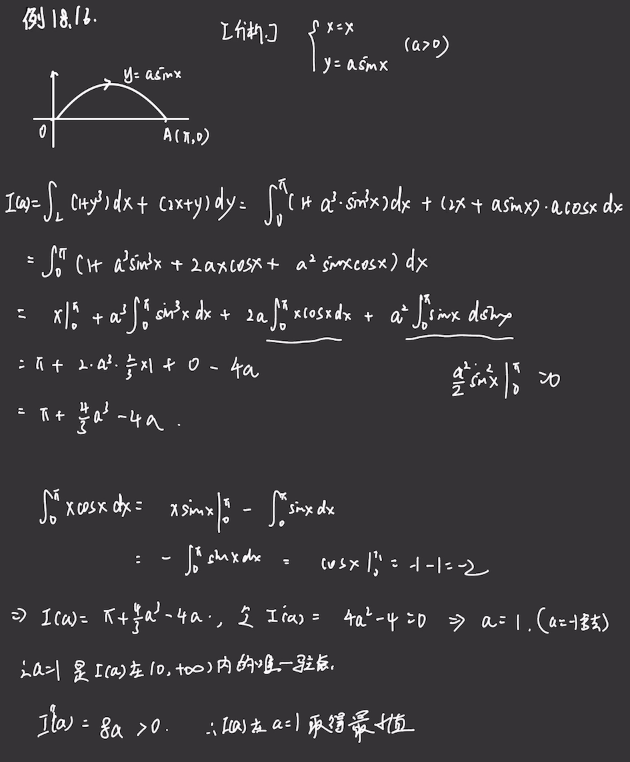 例18.13.
[分析.] { x=x
y=asinx (a>0)
y=asinx
0 A(π,0)
I(a)=∫_L (1+y³)dx+(2x+y)dy= ∫₀^π (1+a³·sin³x)dx+(2x+asinx)·acosx dx
=∫₀^π (1+a³sin³x+2axcosx+a²sinxcosx)dx
= x|₀^π + a³∫₀^π sin³x dx + 2a∫₀^π xcosxdx + a²∫₀^π sinx dsinx
= π+2·a³·2/3×1+0-4a
a²/2 sin²x|₀^π =0
= π+4/3 a³-4a.
∫₀^π xcosx dx= xsinx|₀^π - ∫₀^π sinx dx
= -∫₀^π sinxdx = cosx|₀^π = -1-1=-2
⇒ I(a)= π+4/3 a³-4a., 令 I'(a)= 4a²-4=0 ⇒ a=1. (a=-1舍去)
∴a=1 是I(a)在(0,+∞)内的唯一驻点.
I''(a)=8a>0. ∴I(a)在a=1取得最小值